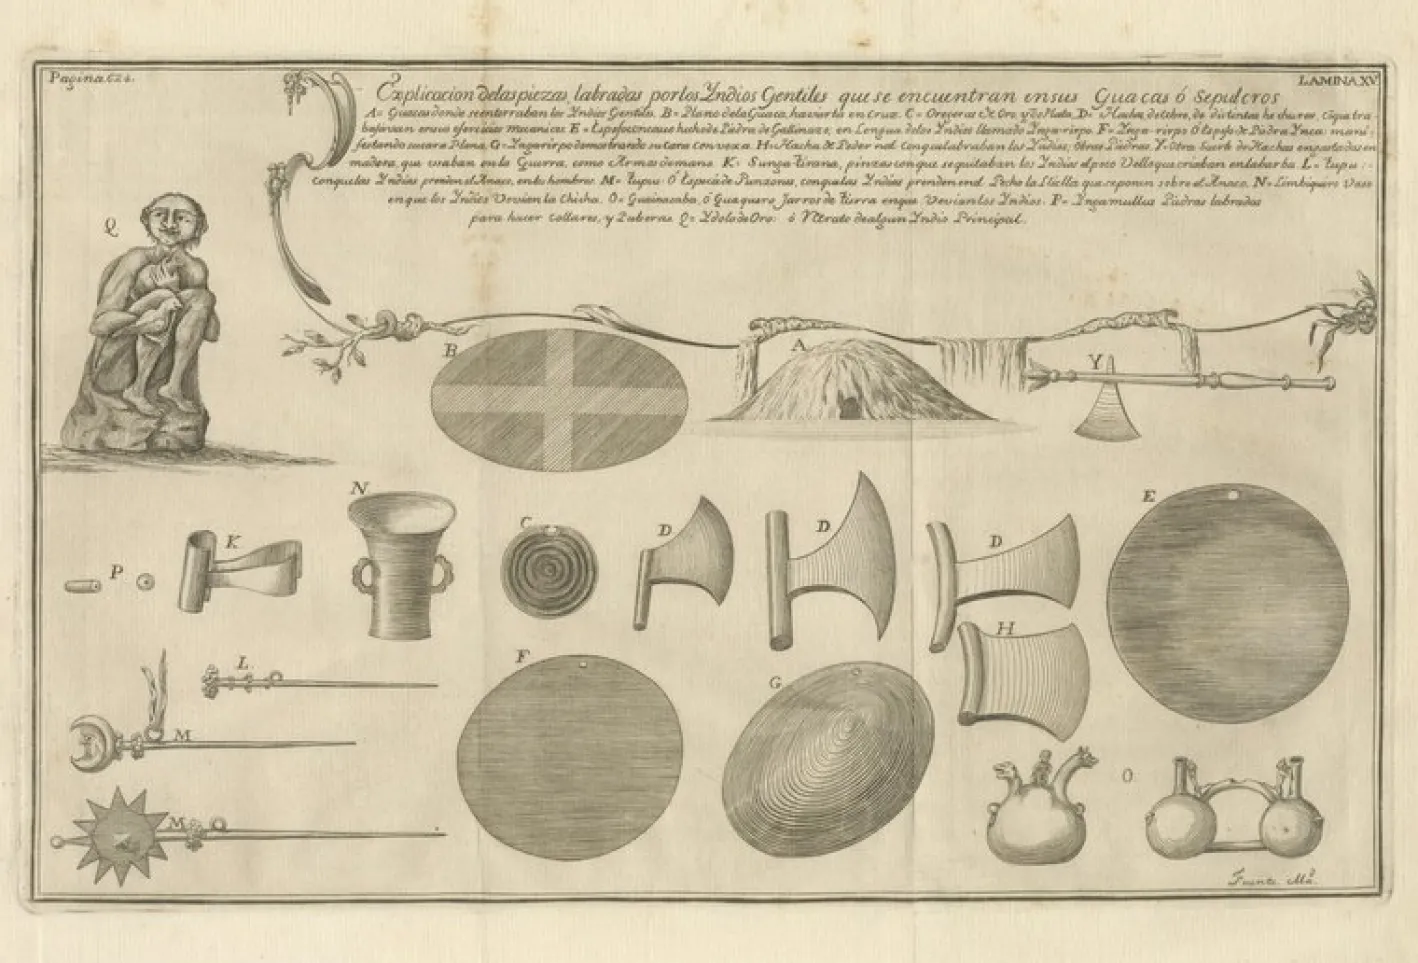 Pagina. 624.
LAMINA XV.
Explicacion delas piezas, labradas por los Yndios Gentiles que se encuentran en sus Guacas ó Sepulcros
A= Guacas donde se enterraban los Yndios Gentiles. B= Plano dela Guaca, havierta en Cruz. C= Orejeras de Oro, y de Plata. D= Hacha, de Cobre, de distintas hechuras, Con que tra-
bajavan en sus exercicios mecanicas. E= Espejo concauo hecho de Piedra de Gallinazo, en Lengua delos Yndios llamado Ynga-rirpo. F= Ynga-rirpo ó Espejo de Piedra Ynca: mani-
festando su cara Plana. G= Yngarirpo demostrando su cara convexa. H= Hacha de Peder nal con que labraban los Yndios, Otras Piedras. Y= Otra Suerte de Hachas enpastadas en
madera, que usaban en la Guerra, como Armas de mano. K= Sunga tirana, pinzas con que se quitaban los Yndios el poco Vello que criaban en la barba. L= tupu:-
con que las Yndias prenden el Anaco, en los hombros. M= tupus: Ó Especie de Punzones, con que las Yndias prenden en el Pecho la Lliclla que se ponen sobre el Anaco. N= Limbiquiro Vaso
en que los Yndios Vevian la Chicha. O= Guainacaba, ó Guaquero Jarros de tierra en que Vevian los Yndios. P= Yngamullus Piedras labradas
para hacer Collares, y Pulseras Q= Ydolo de Oro: ó Retrato de algun Yndio Principal.
Q
B
A
Y
N
K
P
C
D
D
D
E
H
L
F
G
M
O
M
Fuente Mâ.